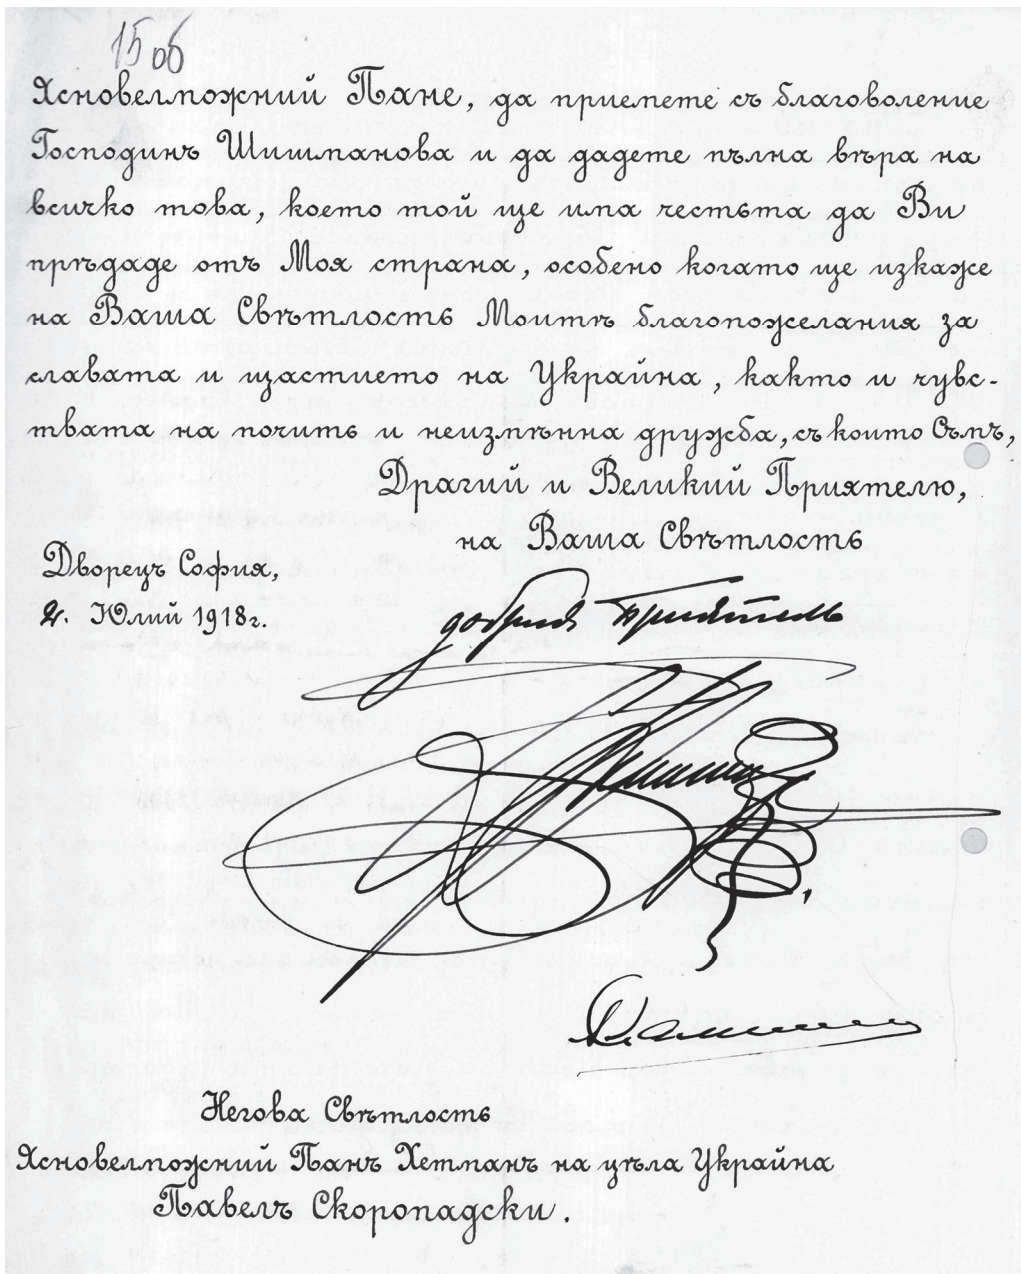 15 об
Ясновелможний Пане, да приемете съ благоволение
Господинъ Шишманова и да дадете пълна вѣра на
всичко това, което той ще има честьта да Ви
прѣдаде отъ Моя страна, особено когато ще изкаже
на Ваша Свѣтлость Моитѣ благопожелания за
славата и щастието на Украйна, както и чувс-
твата на почить и неизмѣнна дружба, съ които Съмъ,
Драгий и Великий Приятелю,
на Ваша Свѣтлость
Дворецъ София,
2. Юлий 1918 г.
добрия Приятель
Негова Свѣтлость
Ясновелможний Панъ Хетманъ на цѣла Украйна
Павелъ Скоропадски.